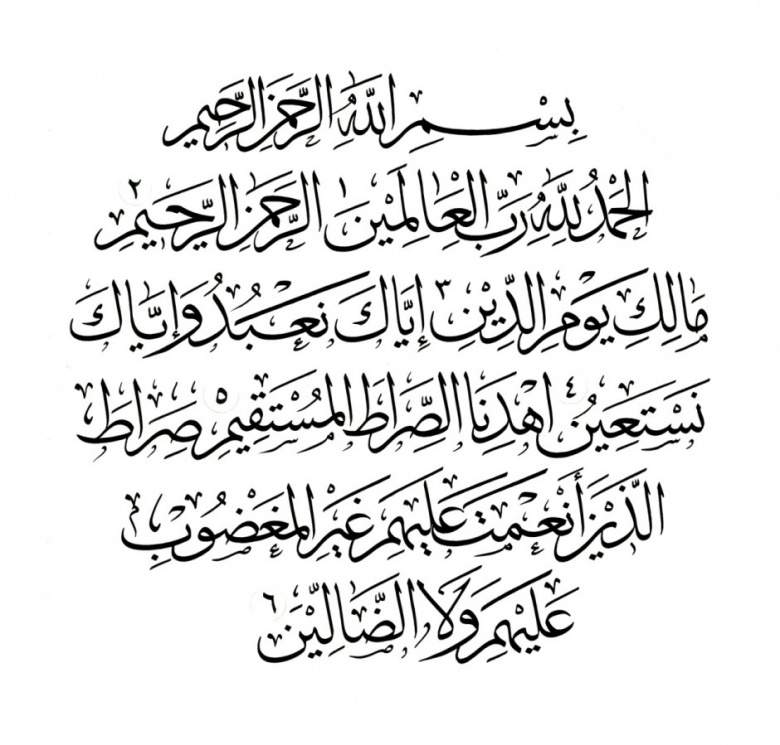 بِسْمِ اللَّهِ الرَّحْمَنِ الرَّحِيمِ
الْحَمْدُ لِلَّهِ رَبِّ الْعَالَمِينَ ١ الرَّحْمَنِ الرَّحِيمِ ٢
مَالِكِ يَوْمِ الدِّينِ ٣ إِيَّاكَ نَعْبُدُ وَإِيَّاكَ
نَسْتَعِينُ ٤ اهْدِنَا الصِّرَاطَ الْمُسْتَقِيمَ ٥ صِرَاطَ
الَّذِينَ أَنْعَمْتَ عَلَيْهِمْ غَيْرِ الْمَغْضُوبِ
عَلَيْهِمْ وَلَا الضَّالِّينَ ٦